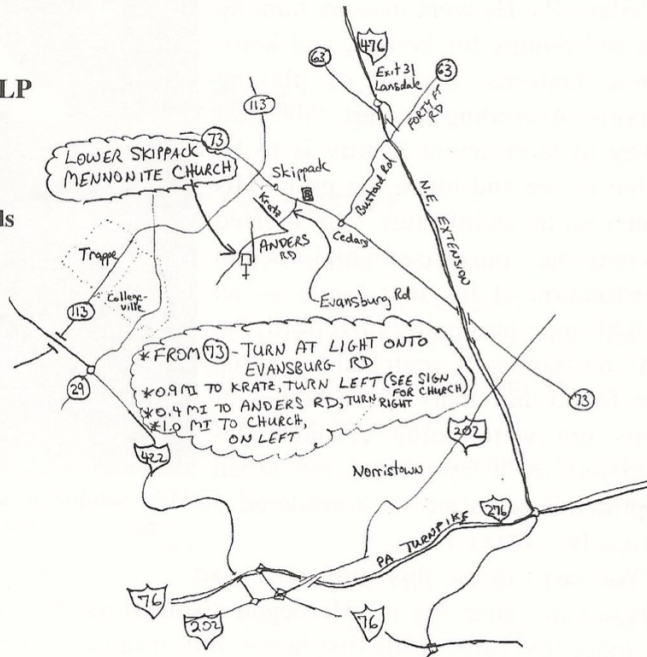 LP
ds
476
63
Exit 31
Lansdale
63
FORTY FT
RD
113
73
LOWER SKIPPACK
MENNONITE CHURCH
Skippack
Kratz
Bustard Rd
N.E. EXTENSION
Cedars
ANDERS
RD
Trappe
College-
ville
Evansburg Rd
113
29
* FROM 73 - TURN AT LIGHT ONTO
EVANSBURG RD
* 0.9 MI TO KRATZ, TURN LEFT (SEE SIGN
FOR CHURCH)
* 0.4 MI TO ANDERS RD, TURN RIGHT
* 1.0 MI TO CHURCH,
ON LEFT
73
202
422
Norristown
276
PA TURNPIKE
76
202
76